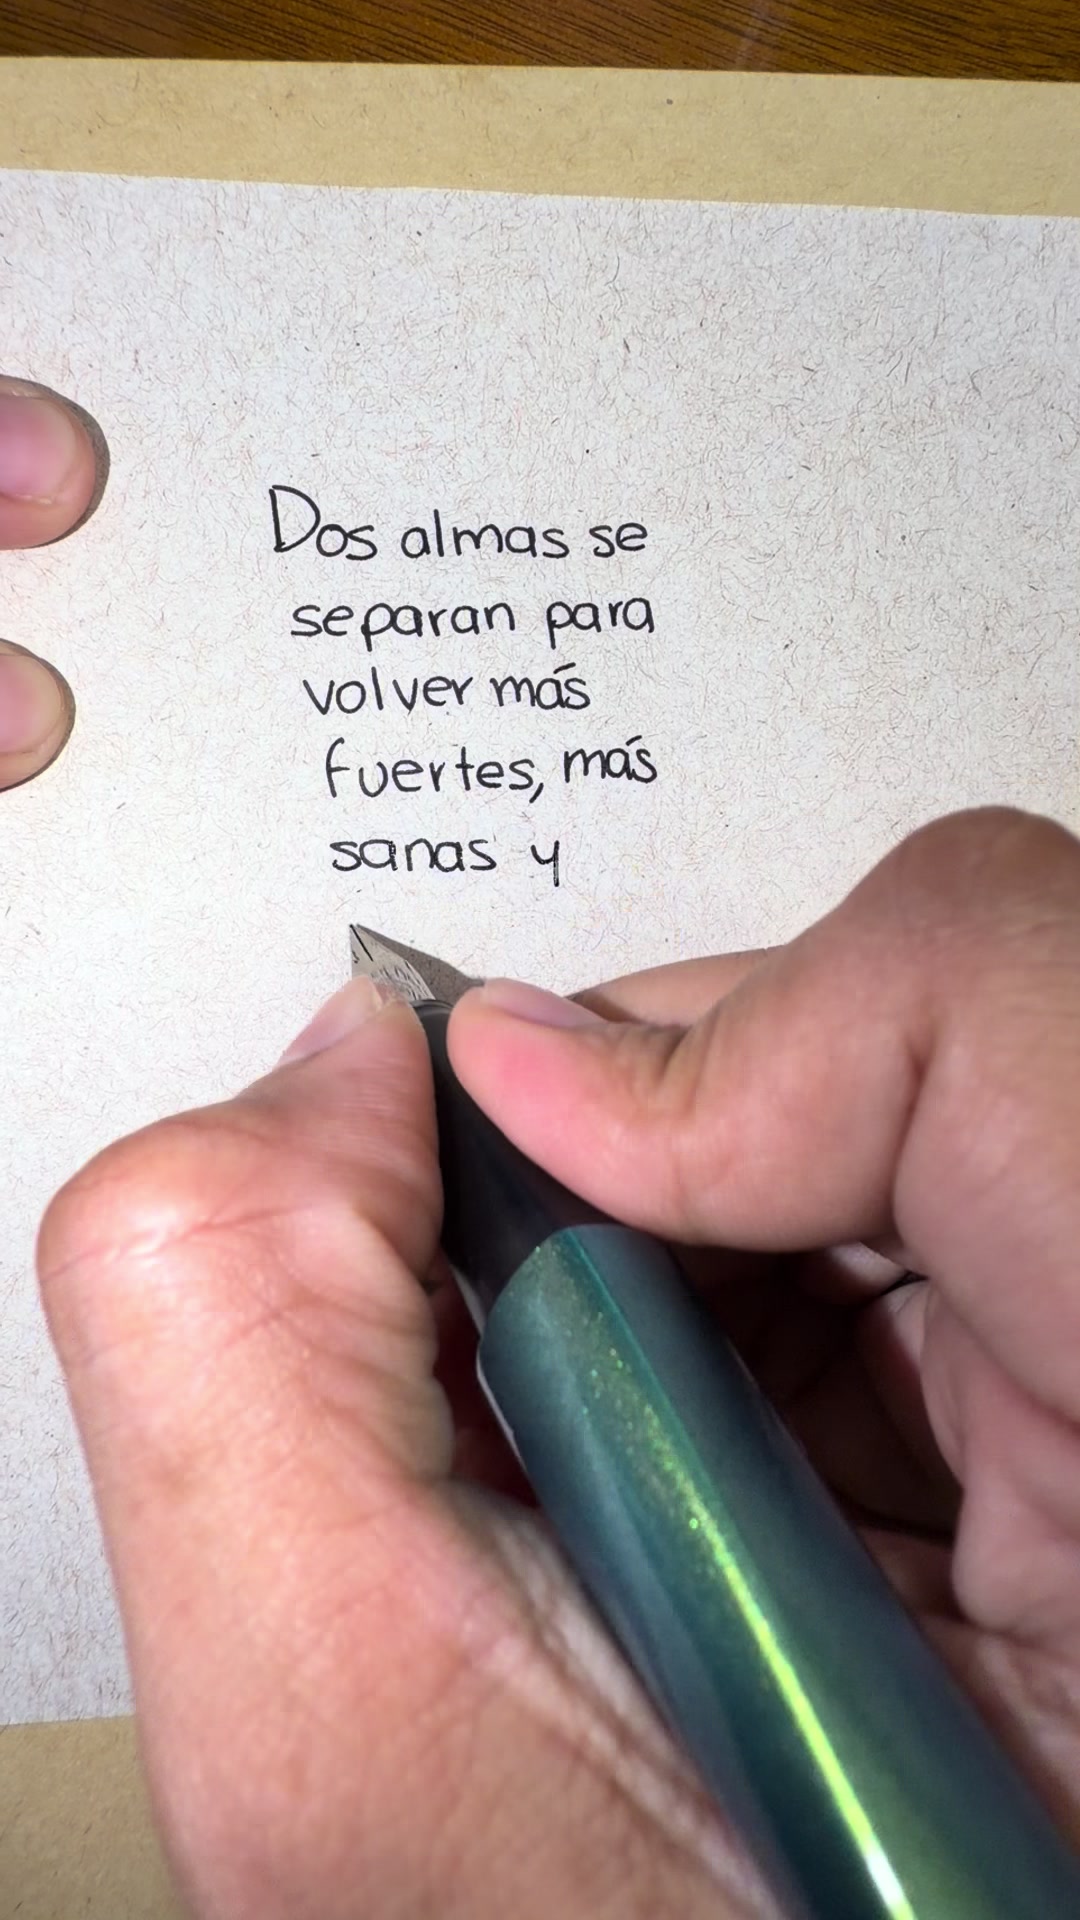 Dos almas se
separan para
volver más
fuertes, más
sanas y